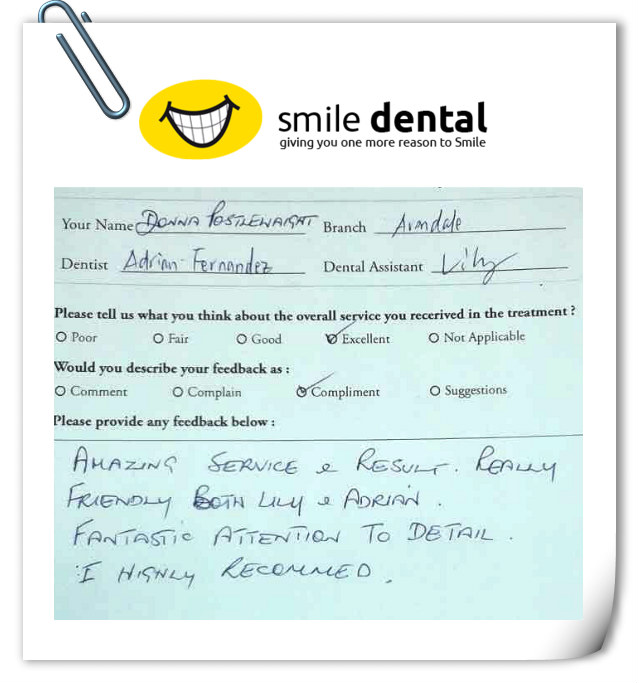 smile dental
giving you one more reason to Smile
Your Name DONNA POSTLEWAIGHT Branch Armdale
Dentist Adrian Fernandez Dental Assistant Lily
Please tell us what you think about the overall service you recerived in the treatment ?
Poor Fair Good Excellent Not Applicable
Would you describe your feedback as :
Comment Complain Compliment Suggestions
Please provide any feedback below :
AMAZING SERVICE & RESULT. REALLY
FRIENDLY BOTH LILY & ADRIAN.
FANTASTIC ATTENTION TO DETAIL.
I HIGHLY RECOMMED.